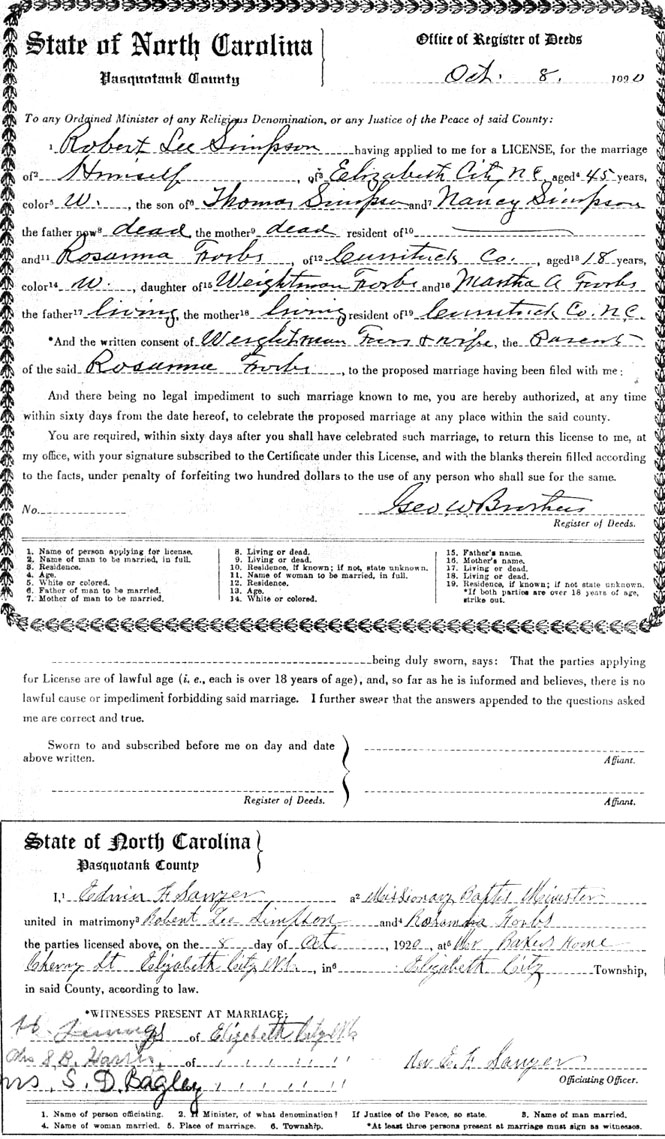 State of North Carolina
Pasquotank County
Office of Register of Deeds
Oct. 8, 1920
To any Ordained Minister of any Religious Denomination, or any Justice of the Peace of said County:
1 Robert Lee Simpson having applied to me for a LICENSE, for the marriage
of2 Himself, of3 Elizabeth City, N.C., aged4 45 years,
color5 W., the son of6 Thomas Simpson and7 Nancy Simpson
the father now8 dead, the mother9 dead resident of10
and11 Rosanna Forbs, of12 Currituck Co., aged13 18 years,
color14 W., daughter of15 Weightman Forbs and16 Martha A Forbs
the father17 living, the mother18 living resident of19 Currituck Co. N.C.
*And the written consent of Weightman & wife, the Parents
of the said Rosanna Forbs, to the proposed marriage having been filed with me:
And there being no legal impediment to such marriage known to me, you are hereby authorized, at any time
within sixty days from the date hereof, to celebrate the proposed marriage at any place within the said county.
You are required, within sixty days after you shall have celebrated such marriage, to return this license to me, at
my office, with your signature subscribed to the Certificate under this License, and with the blanks therein filled according
to the facts, under penalty of forfeiting two hundred dollars to the use of any person who shall sue for the same.
No.
Geo. W. Brothers
Register of Deeds.
1. Name of person applying for license.
2. Name of man to be married, in full.
3. Residence.
4. Age.
5. White or colored.
6. Father of man to be married.
7. Mother of man to be married.
8. Living or dead.
9. Living or dead.
10. Residence, if known; if not, state unknown.
11. Name of woman to be married, in full.
12. Residence.
13. Age.
14. White or colored.
15. Father's name.
16. Mother's name.
17. Living or dead.
18. Living or dead.
19. Residence, if known; if not state unknown.
*If both parties are over 18 years of age,
strike out.
being duly sworn, says: That the parties applying
for License are of lawful age (i. e., each is over 18 years of age), and, so far as he is informed and believes, there is no
lawful cause or impediment forbidding said marriage. I further swear that the answers appended to the questions asked
me are correct and true.
Sworn to and subscribed before me on day and date
above written.
Affiant.
Register of Deeds.
Affiant.
State of North Carolina
Pasquotank County
I,1 Edwin F Sawyer a2 Missionary Baptis Minister
united in matrimony3 Robert Lee Simpson and4 Forbs
the parties licensed above, on the 8 day of Oct, 1920, at5 Mr Bakers Home
Cherry St Elizabeth City N.C., in6 Elizabeth City Township,
in said County, according to law.
*WITNESSES PRESENT AT MARRIAGE:
of Elizabeth City N.C.
Mrs S. B. Harris, of " " " "
Mrs. S. D. Bagley " " " " "
Rev E. F. Sawyer
Officiating Officer.
1. Name of person officiating. 2. If Minister, of what denomination? If Justice of the Peace, so state. 3. Name of man married.
4. Name of woman married. 5. Place of marriage. 6. Township. *At least three persons present at marriage must sign as witnesses.